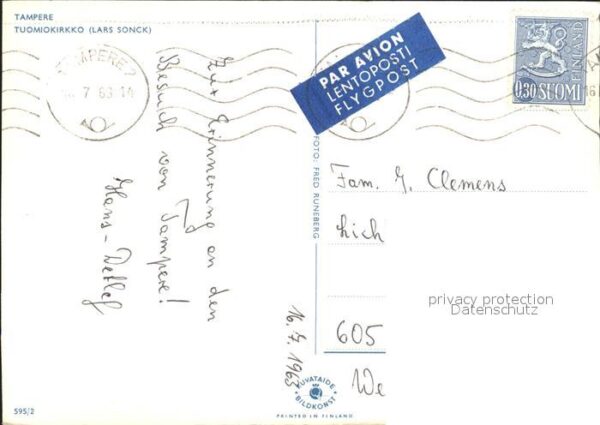 TAMPERE
TUOMIOKIRKKO (LARS SONCK)
TAMPERE 2
16.7 63.14
PAR AVION
LENTOPOSTI
FLYGPOST
FINLAND
0,30 SUOMI
Zur Erinnerung an den
Besuch von Tampere!
Hans-Detlef
16.7.1963
FOTO: FRED RUNEBERG
Fam. G. Clemens
Lich
605
We
privacy protection
Datenschutz
KUVATAIDE
BILDKONST
PRINTED IN FINLAND
595/2